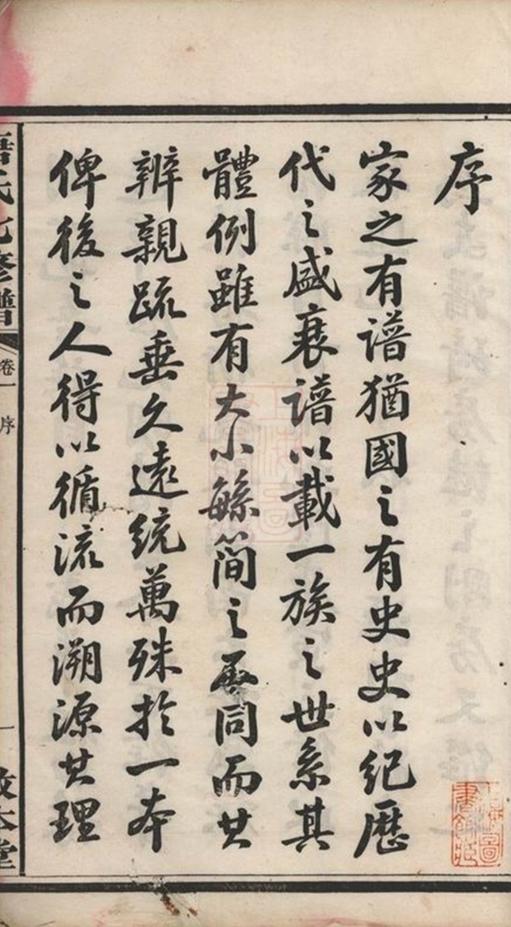 序
家之有谱猶國之有史史以纪歷
代之盛衰谱以載一族之世系其
體例雖有大小繇簡之不同而其
辨親疏垂久遠統萬殊於一本
俾後之人得以循流而溯源其理
氏九修譜
卷一
序
一
敦本堂